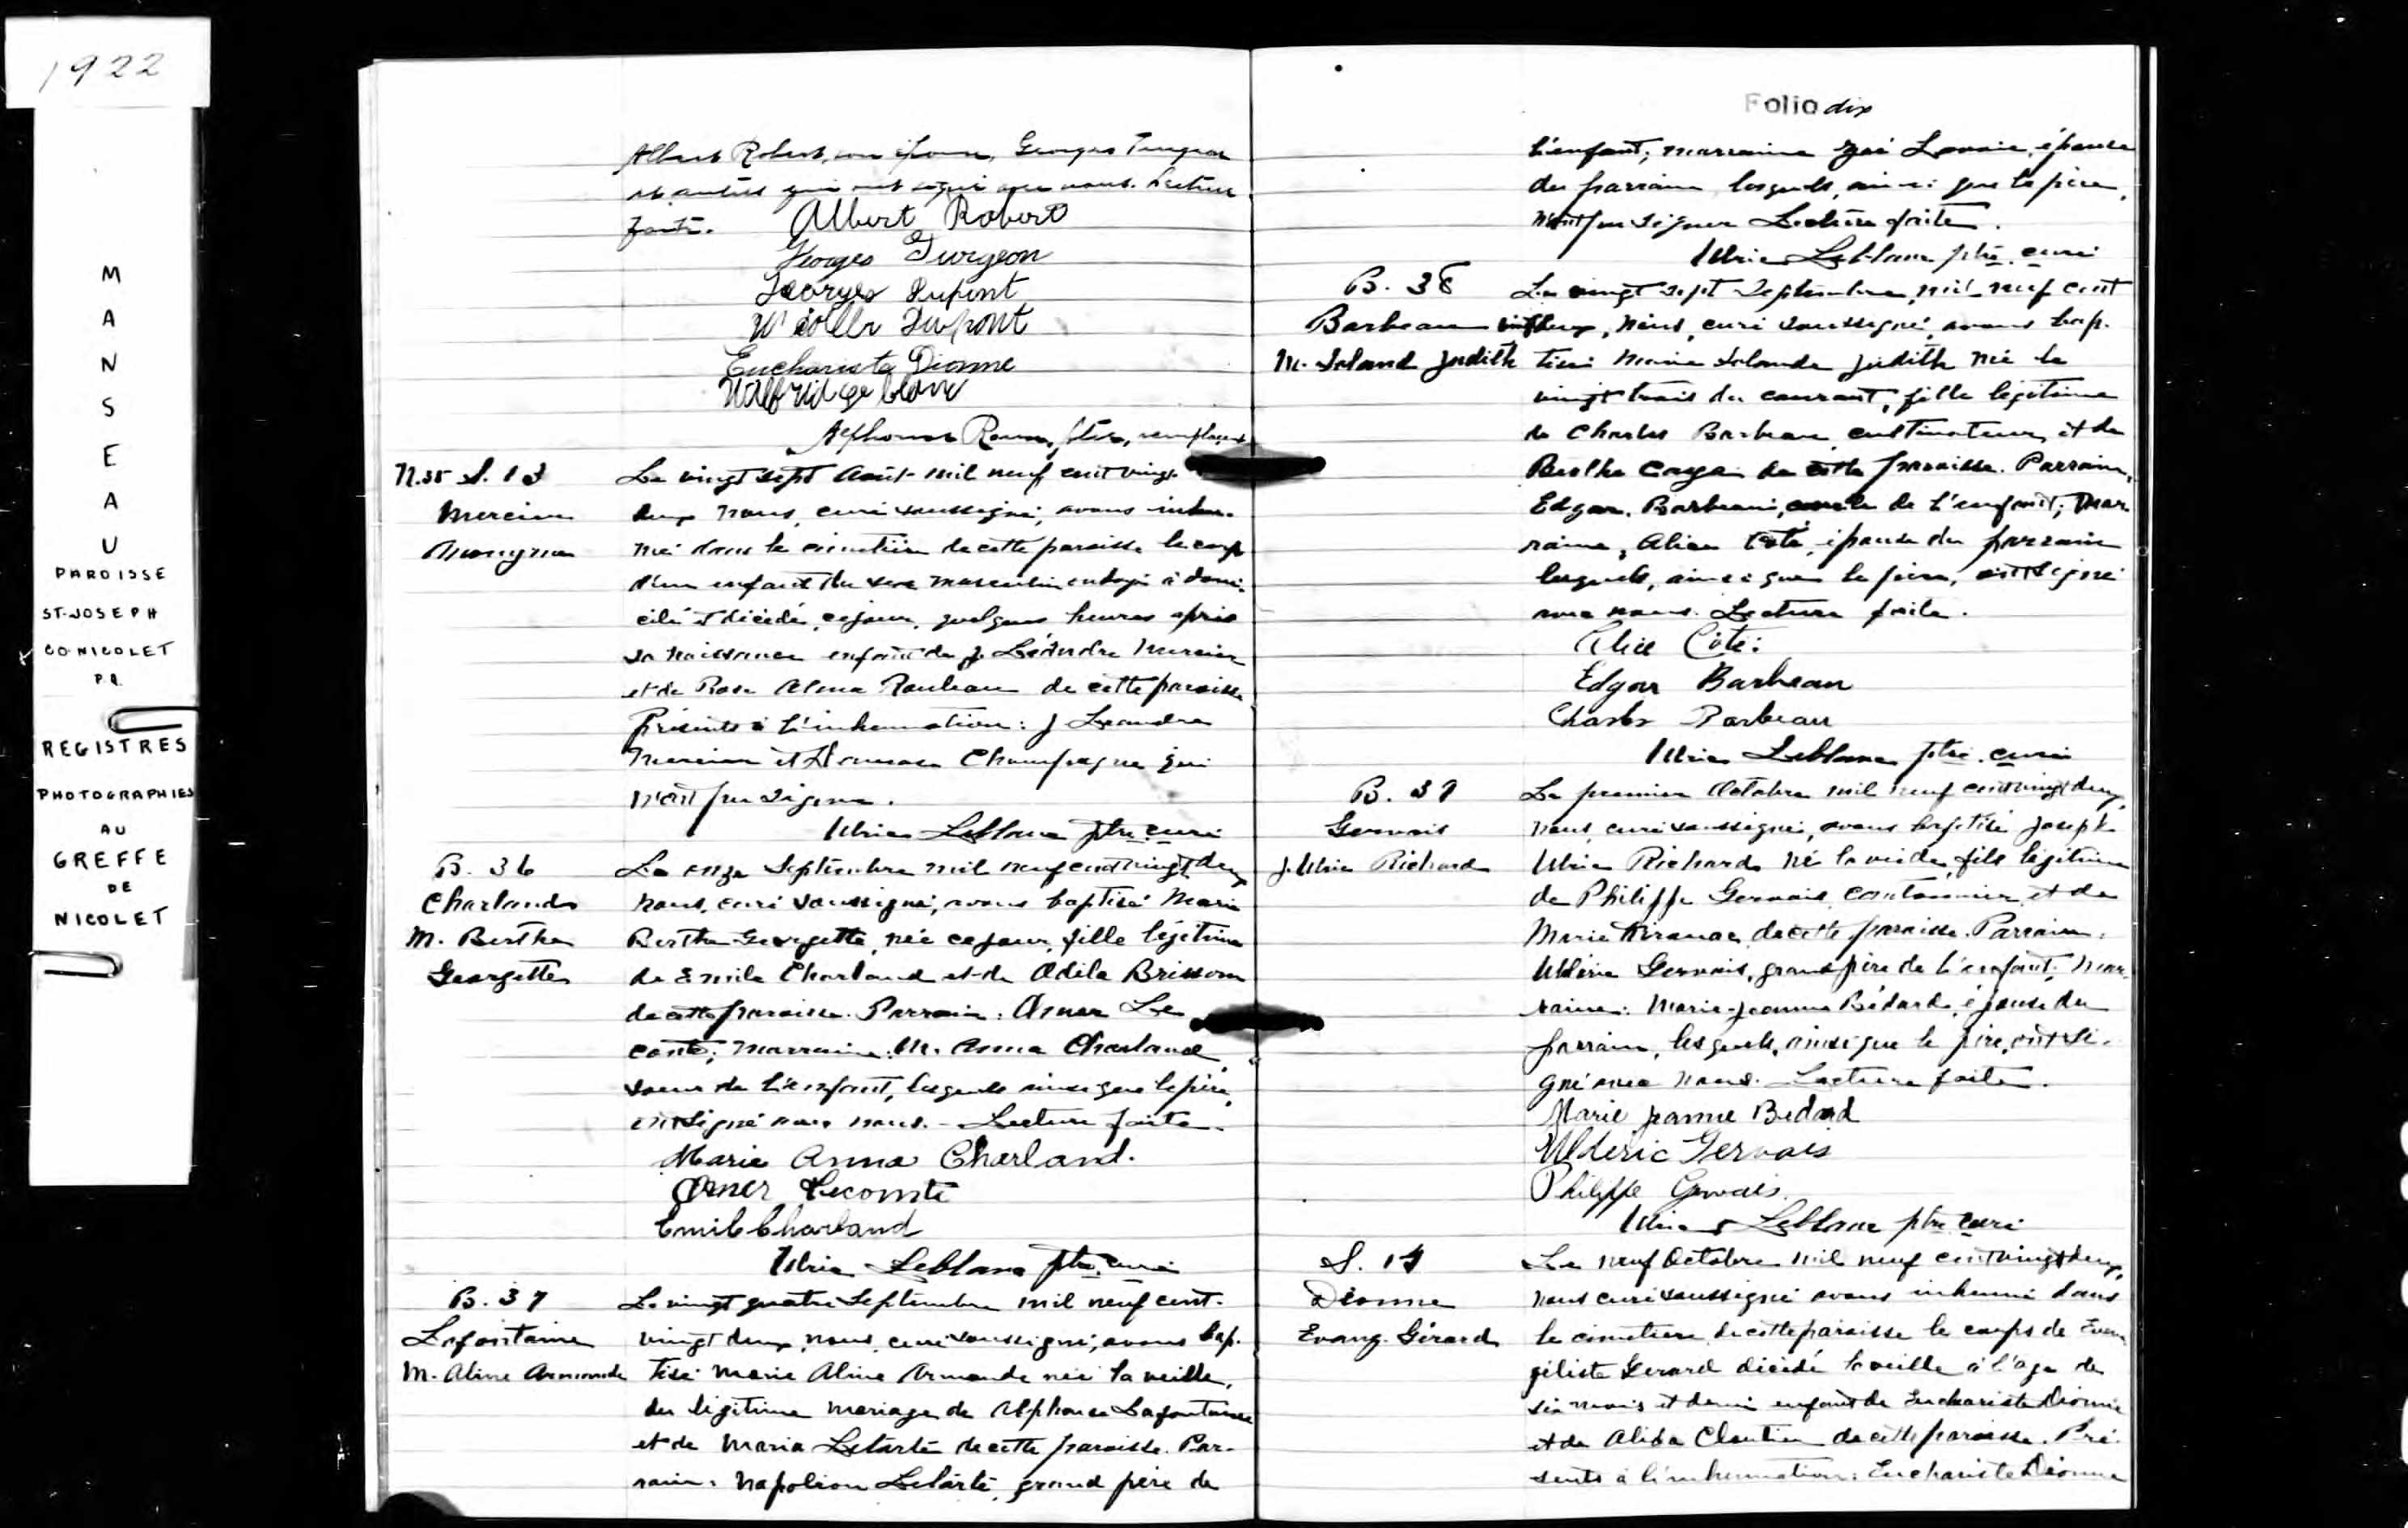 1922
MANSEAU
PAROISSE
ST-JOSEPH
CO. NICOLET
P.Q.
REGISTRES
PHOTOGRAPHIES
AU
GREFFE
DE
NICOLET
Albert Robert, son épouse, Georges Turgeon
et autres qui ont signé avec nous. Lecture
faite. Albert Robert
Georges Turgeon
Georges Dupont
Dupont
Euchariste Dionne
Wilfrid Leblanc
Alphonse ptre, remplaçant
N. 35 S. 13
Mercier
Anonyme
Le vingt sept Août mil neuf cent vingt
deux nous, curé soussigné, avons inhu-
mé dans le cimetière de cette paroisse le corps
d'un enfant du sexe masculin ondoyé à domi-
cile et décédé, ce jour, quelques heures après
sa naissance enfant de J. Léandre Mercier
et de Rose Alma de cette paroisse
Présents à l'inhumation: J Leandre
Mercier et Champagne qui
n'ont pu signer.
Ulric Leblanc ptre curé
B. 36
Charland
M. Bertha
Georgette
Le onze Septembre mil neuf cent vingt deux
nous, curé soussigné, avons baptisé Marie
Bertha Georgette, née ce jour, fille légitime
de Emile Charland et de Odila Brisson
de cette paroisse. Parrain: Omer Le
comte; marraine: M. Anna Charland,
soeur de l'enfant, lesquels ainsi que le père,
ont signé avec nous. - Lecture faite.
Marie Anna Charland.
Omer Lecomte
Emile Charland
Ulric Leblanc ptre. curé
B. 37
Lafontaine
M. Aline Armande
Le vingt quatre Septembre mil neuf cent-
vingt deux, nous, curé soussigné, avons bap-
tisé Marie Aline Armande née la veille,
du légitime mariage de Alphonse Lafontaine
et de Maria Letarte de cette paroisse. Par-
rain: Napoléon Letarte, grand père de
Folio dix
l'enfant; marraine Lavoie, épouse
du parrain lesquels, ainsi que le père,
n'ont pu signer Lecture faite.
Ulric Leblanc ptre. curé
B. 38
Barbeau
M. Roland Judith
Le vingt sept Septembre mil neuf cent
vingt deux, nous, curé soussigné, avons bap-
tisé Marie Judith née le
vingt trois du courant, fille légitime
de Charles Barbeau cultivateur, et de
Bertha de cette paroisse. Parrain,
Edgar Barbeau, oncle de l'enfant; mar-
raine, Alice Coté, épouse du parrain
lesquels, ainsi que le père, ont signé
avec nous. Lecture faite.
Alice Côté:
Edgar Barbeau
Charles Barbeau
Ulric Leblanc ptre. curé
B. 39
Gervais
J. Ulric Richard
Le premier Octobre mil neuf cent vingt deux,
nous, curé soussigné, avons baptisé Joseph
Ulric Richard né la veille, fils légitime
de Philippe Gervais, cantonnier et de
Marie de cette paroisse. Parrain:
Uldéric Gervais, grand père de l'enfant; mar-
raine: Marie-Jeanne Bédard, épouse du
parrain, lesquels, ainsi que le père, ont si-
gné avec nous. Lecture faite.
Marie Jeanne Bedard
Ulderic Gervais
Philippe Gervais.
Ulric Leblanc ptre curé
S. 14
Dionne
Evang. Gérard
Le neuf Octobre mil neuf cent vingt deux,
nous curé soussigné avons inhumé dans
le cimetière de cette paroisse le corps de Evan-
géliste Gerard décédé la veille à l'age de
six mois et demi enfant de Euchariste Dionne
et de Alida Cloutier de cette paroisse. Pré-
sents à l'inhumation: Euchariste Dionne